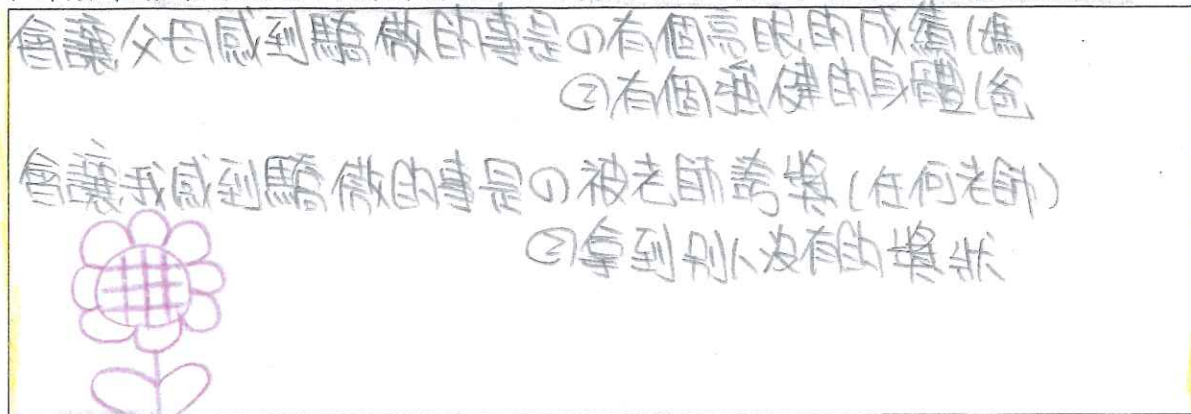 會讓父母感到驕傲的事是①有個亮眼的成績(媽
②有個強健的身體(爸
會讓我感到驕傲的事是①被老師誇獎(任何老師)
②拿到別人沒有的獎狀